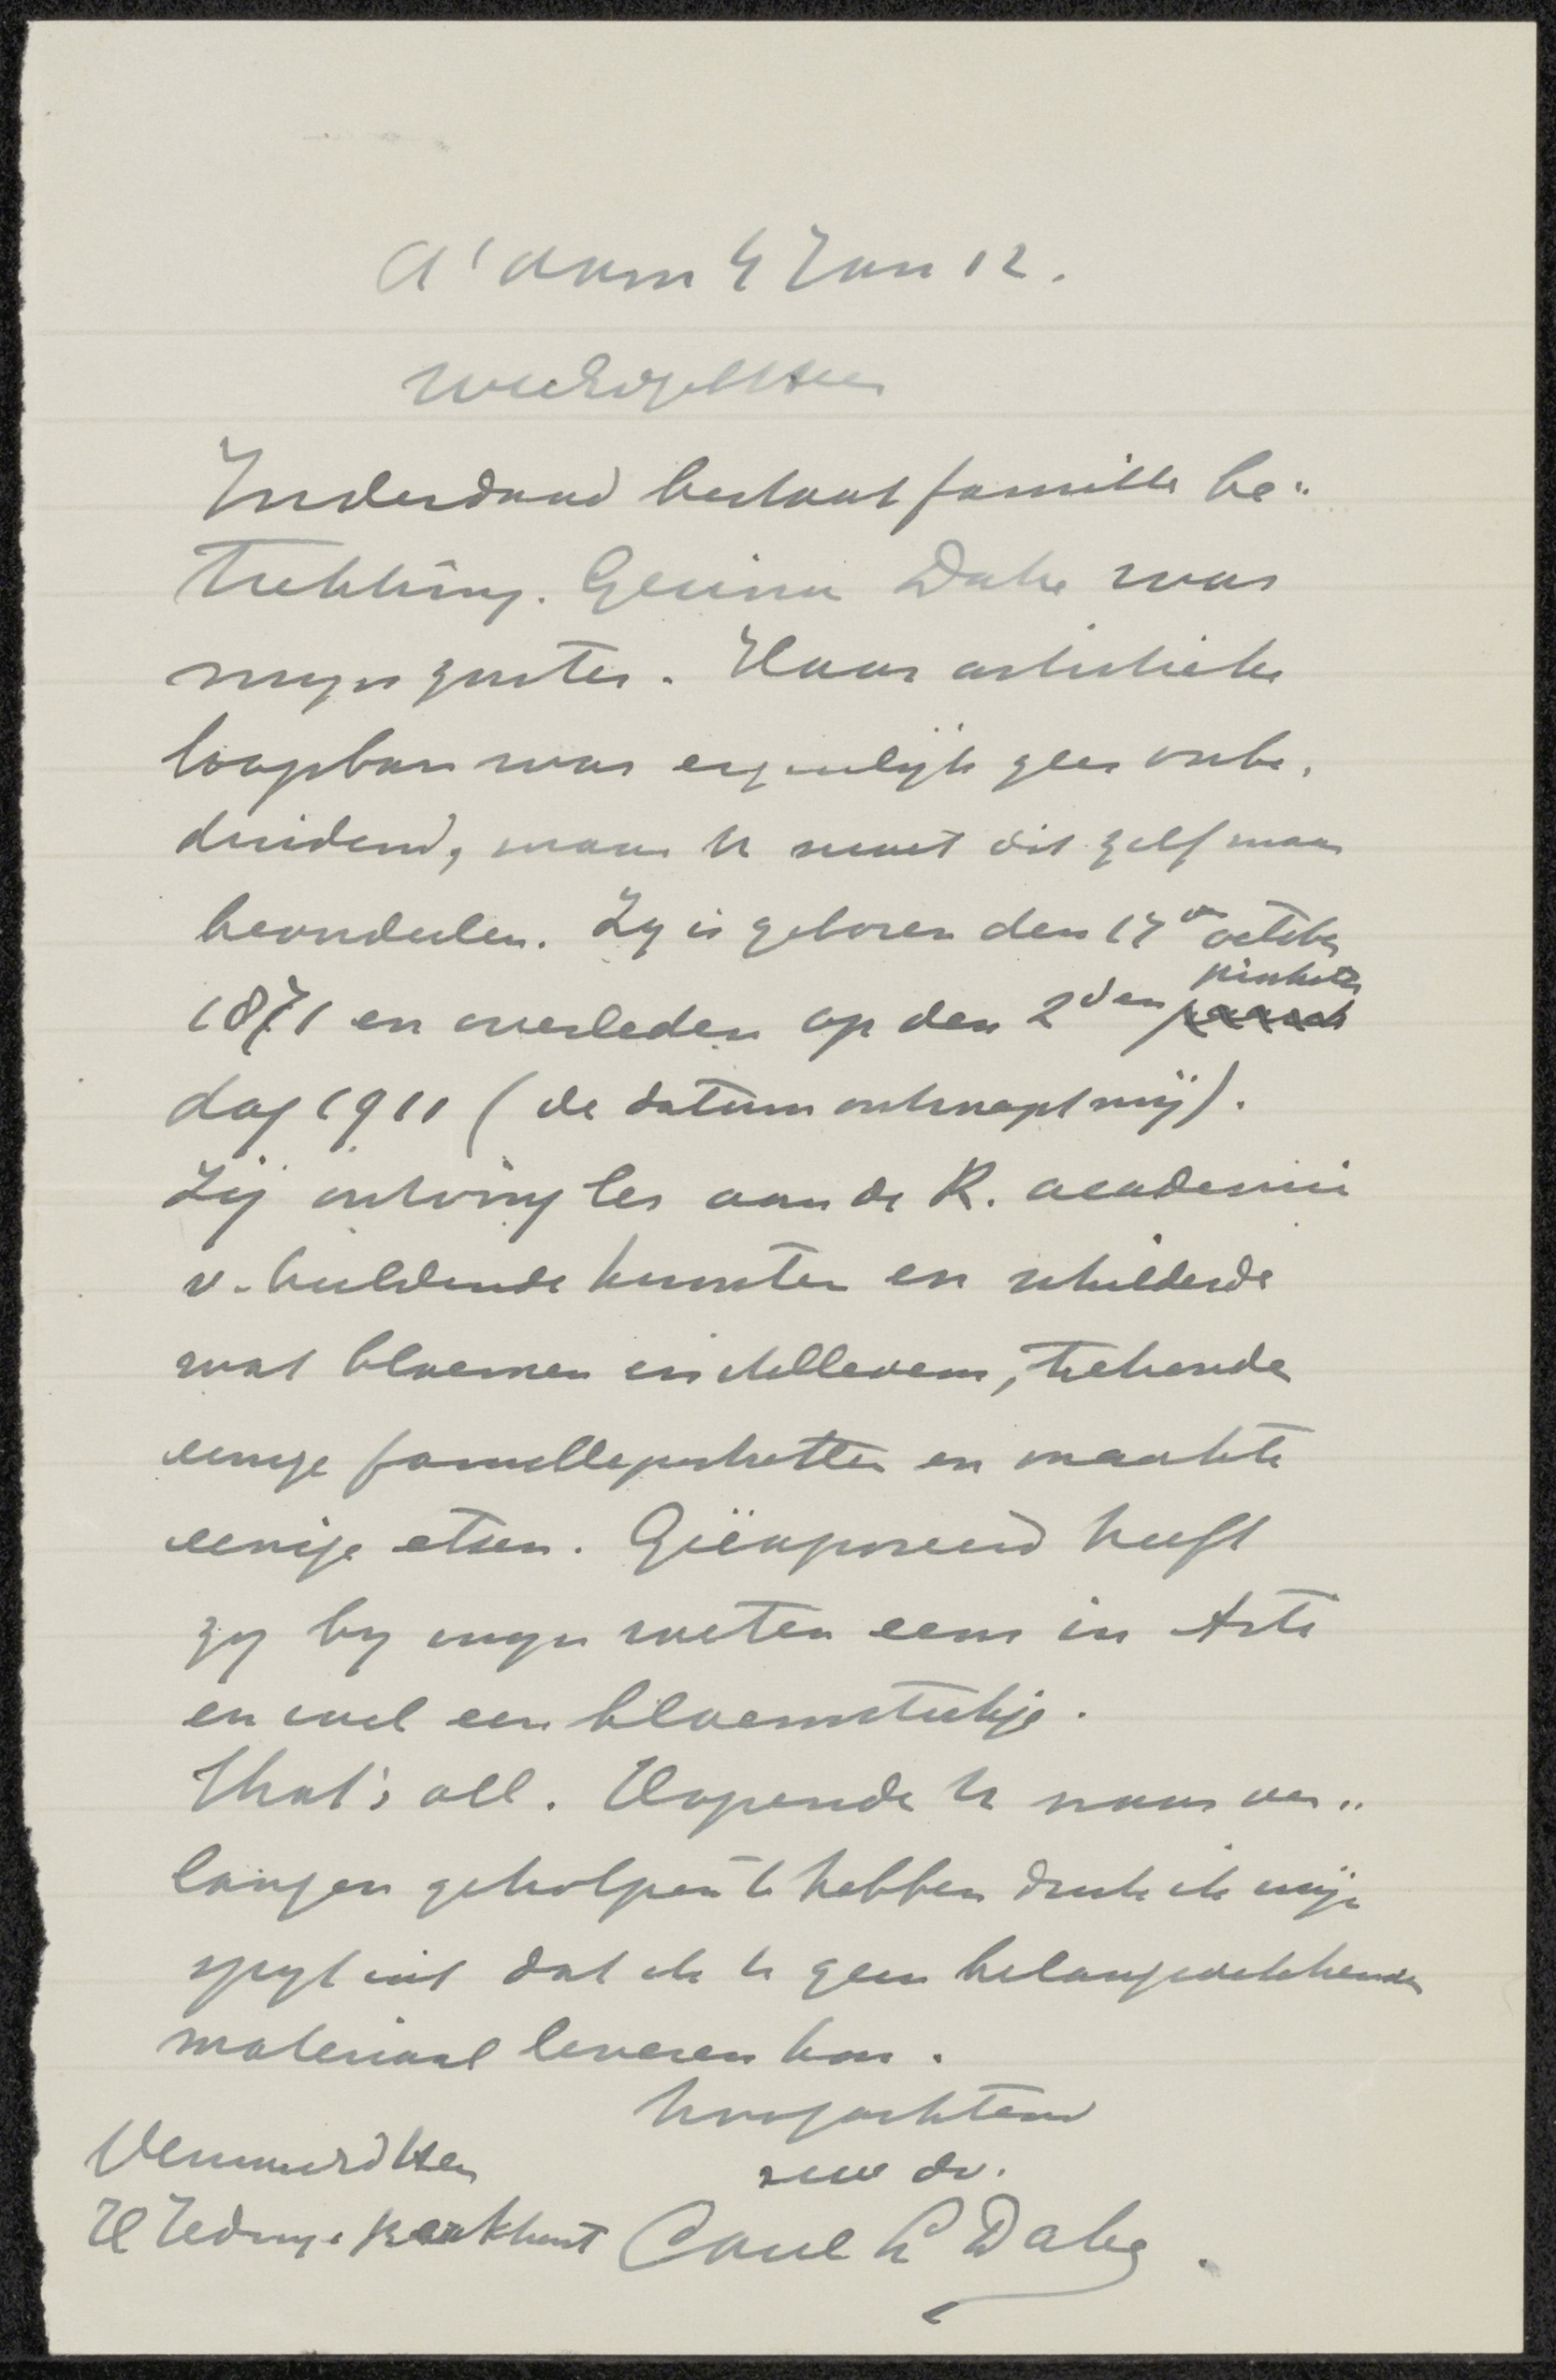 A'dam 4 Jan 12.
WelEdgeb Heer
Inderdaad bestaat familie be„
trekking. Gesina Dake was
mijn zuster. Haar artistieke
loopbaan was eigenlijk zeer onbe„
duidend, maar U moet dit zelf maar
beoordeelen. Zy is geboren den 17en october
1871 en overleden op den 2den pinkster
dag 1911 (de datum ontsnapt mij).
Zij ontving les aan de R. academie
v. beeldende kunsten en schilderde
wat bloemen en stillevens, teekende
eenige familleportretten en maakte
eenige etsen. Geëxposeerd heeft
zy by myn weten eens in Arti
en wel een bloemstukje.
that's all. Hopende U naar ver„
langen geholpen te hebben druk ik mijn
spyt uit dat ik U geen belangwekkender
materiaal leveren kan.
Hoogachtend
uw dv.
Carel L Dake.
Den weled Heer
H Kerkhert